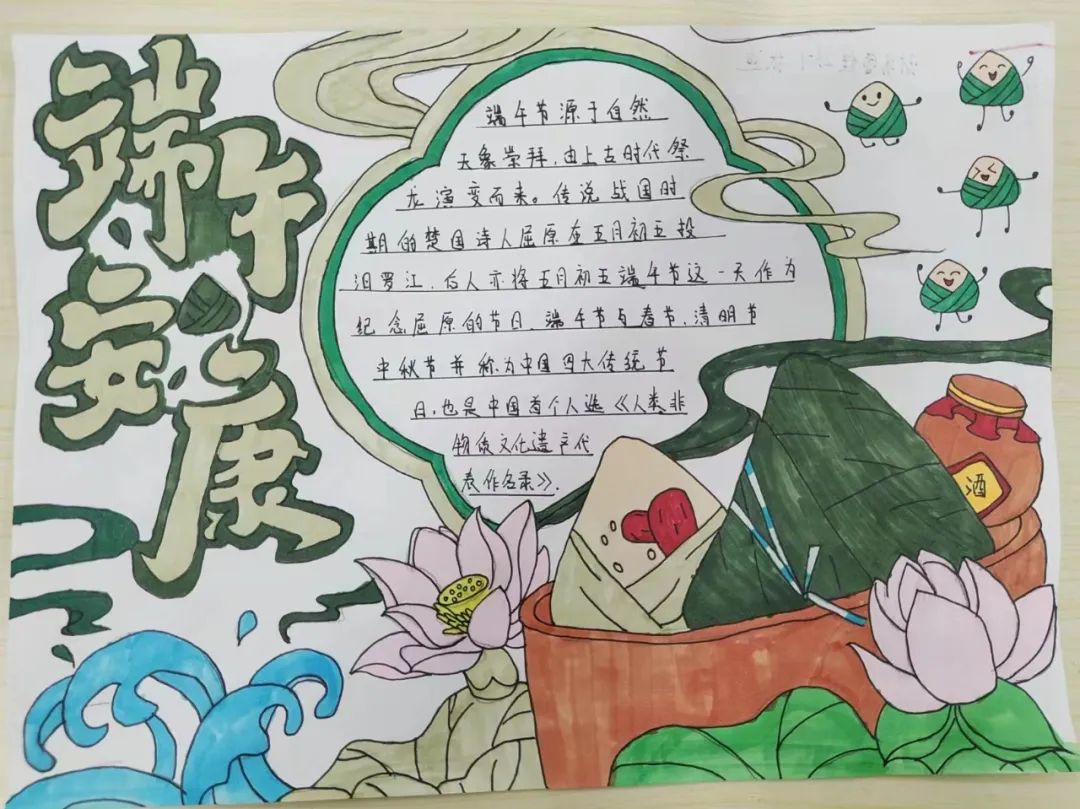 端午安康
端午节源于自然
天象崇拜,由上古时代祭
龙演变而来。传说战国时
期的楚国诗人屈原在五月初五投
汨罗江,后人亦将五月初五端午节这一天作为
纪念屈原的节日,端午节与春节,清明节
中秋节并称为中国四大传统节
日,也是中国首个入选《人类非
物质文化遗产代
表作名录》.
酒